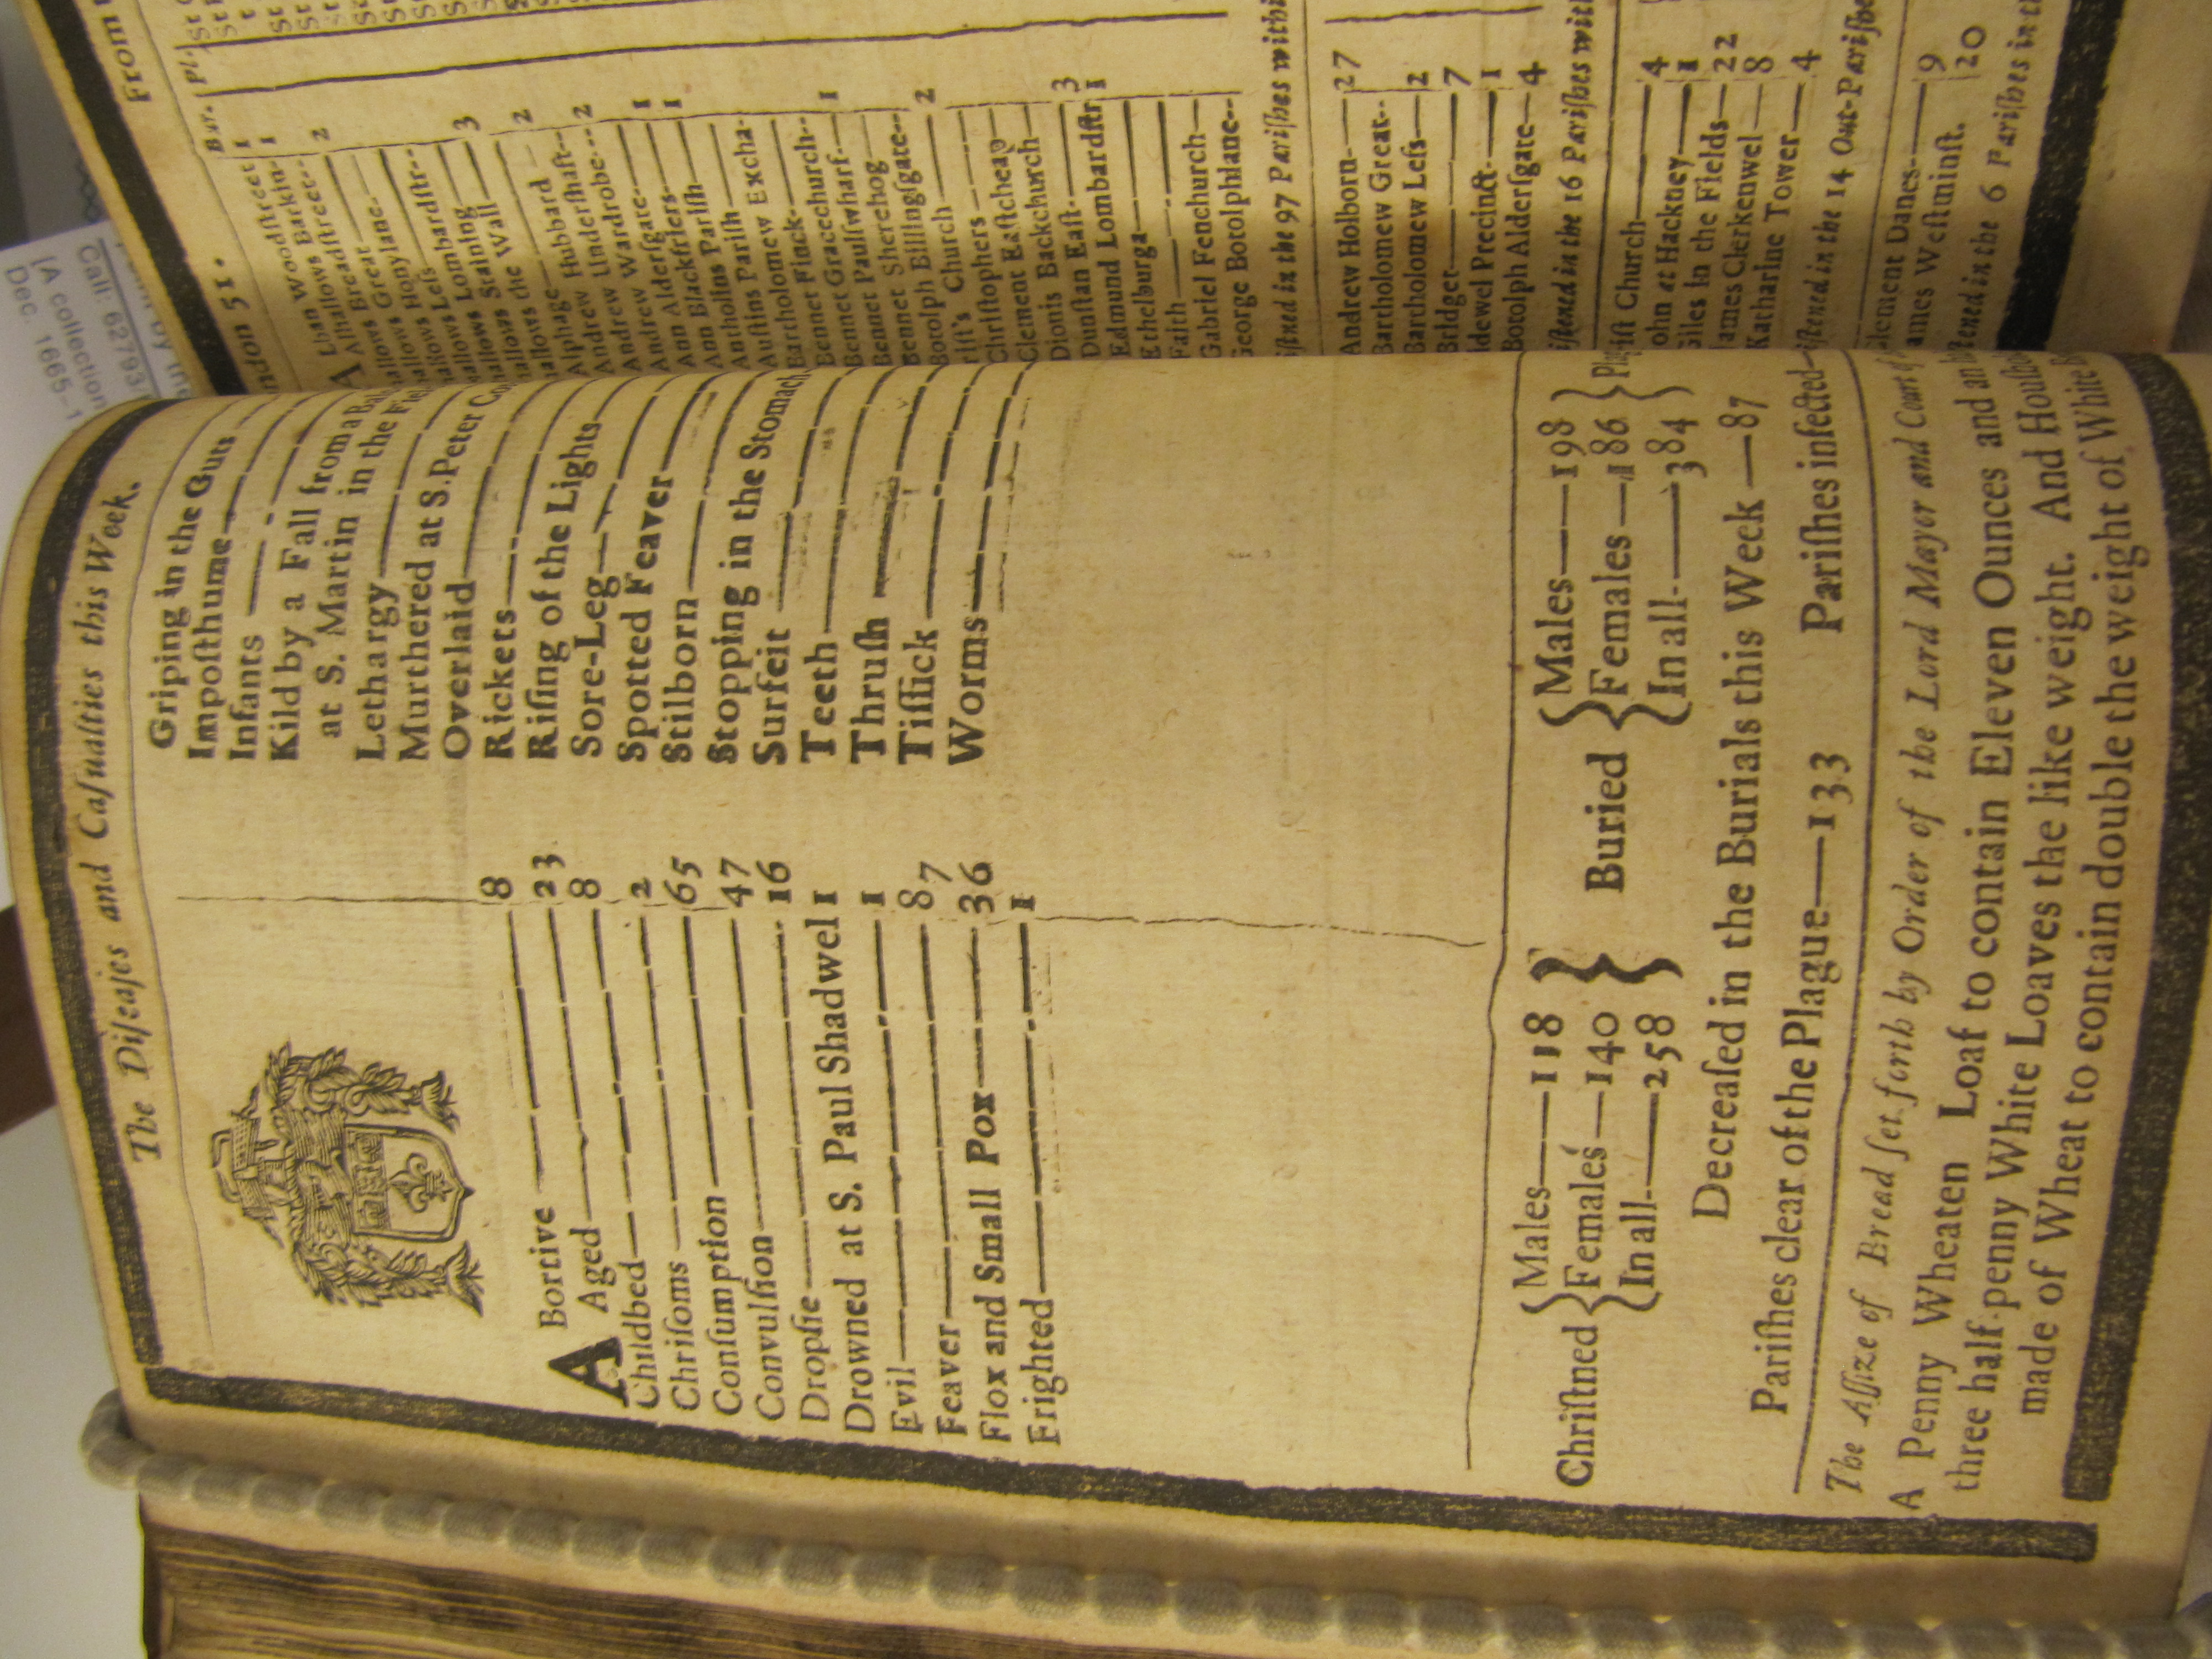 The Diseases and Casualties this Week.
ABortive — 8
Aged — 23
Childbed — 8
Chrisoms — 2
Consumption — 65
Convulsion — 47
Dropsie — 16
Drowned at S. Paul Shadwel 1
Evil — 1
Feaver — 87
Flox and Small Pox — 36
Frighted — 1
Griping in the Guts
Imposthume
Infants
Kild by a Fall from a
at S. Martin in the
Lethargy
Murthered at S. Peter
Overlaid
Rickets
Rising of the Lights
Sore-Leg
Spotted Feaver
Stilborn
Stopping in the Stomach
Surfeit
Teeth
Thrush
Tissick
Worms
Christned { Males — 118 Females — 140 In all — 258 }
Buried { Males — 198 Females — 186 In all — 384 }
Decreased in the Burials this Week — 87
Parishes clear of the Plague — 133 Parishes infected
The Assize of Bread set forth by Order of the Lord Mayor and Court of
A Penny Wheaten Loaf to contain Eleven Ounces and
three half-penny White Loaves the like weight. And
made of Wheat to contain double the weight of White
From
ndon 51.
Bur. Pl.
Lban Woodstreet 1
allows Barkin- 1
Alhallows Breadstreet-- 2
allows Great
allows Honylane
allows Less
allows Lombardstr--
allows Staining — 3
allows the Wall — 2
Alphage
Andrew Hubbard
Andrew Undershaft-- 2
Andrew Wardrobe---
Ann Aldersgate — 1
Ann Blackfriers — 1
Antholins Parish
Austins Parish
Bartholomew Excha-
Bennet Finck
Bennet Gracechurch-- 1
Bennet Paulswharf
Bennet Sherehog
Botolph Billingsgate-- 2
rist's Church
Christophers
Clement Eastcheap
Dionis Backchurch
Dunstan East — 3
Edmund Lombardstr 1
Ethelburga
Faith
Gabriel Fenchurch
George Botolphlane--
istned in the 97 Parishes withi
Andrew Holborn — 27
Bartholomew Great--
Bartholomew Less — 2
Bridget — 7
idewel Precinct — 1
Botolph Aldersgate — 4
istened in the 16 Parishes with
ist Church — 4
ohn at Hackney — 1
iles in the Fields — 22
ames Clerkenwel — 8
Katharine Tower — 4
istened in the 14 Out-Parishe
lement Danes — 9
ames Westminst. 20
tened in the 6 Parishes in th
Call: 62793
[A collection
Dec. 1665-1